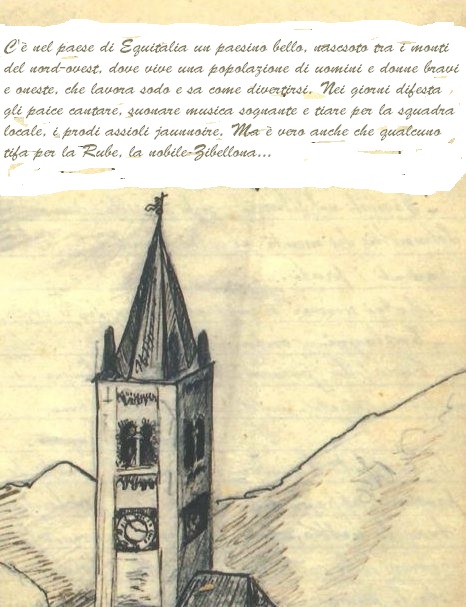 C'è nel paese di Equitalia un paesino bello, nascsoto tra i monti
del nord-ovest, dove vive una popolazione di uomini e donne bravi
e oneste, che lavora sodo e sa come divertirsi. Nei giorni difesta
gli paice cantare, suonare musica sognante e tiare per la squadra
locale, i prodi assioli jaunnoire. Ma è vero anche che qualcuno
tifa per la Rube, la nobile Zibellona...